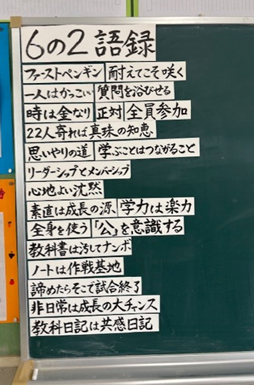 6の2語録
ファーストペンギン 耐えてこそ咲く
一人はかっこいい 質問を浴びせる
時は金なり 正対 全員参加
22人寄れば真珠の知恵
思いやりの道 学ぶことはつながること
リーダーシップとメンバーシップ
心地よい沈黙
素直は成長の源 学力は楽力
全身を使う 「公」を意識する
教科書は汚してナンボ
ノートは作戦基地
諦めたらそこで試合終了
非日常は成長の大チャンス
教科日記は共感日記